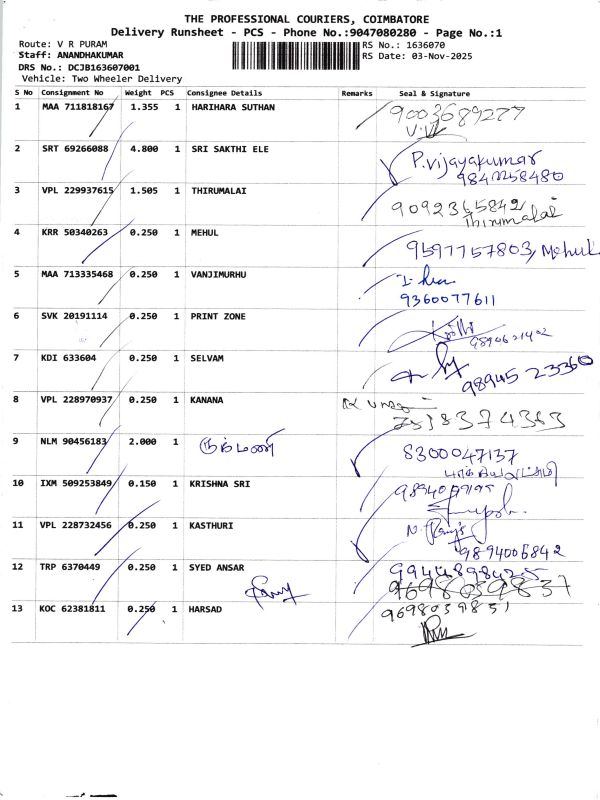 THE PROFESSIONAL COURIERS, COIMBATORE
Delivery Runsheet - PCS - Phone No.:9047080280 - Page No.:1
Route: V R PURAM
RS No.: 1636070
Staff: ANANDHAKUMAR
RS Date: 03-Nov-2025
DRS No.: DCJB163607001
Vehicle: Two Wheeler Delivery
S No Consignment No Weight PCS Consignee Details Remarks Seal & Signature
1 MAA 711818167 1.355 1 HARIHARA SUTHAN 9003689277
2 SRT 69266088 4.800 1 SRI SAKTHI ELE P.vijayakumar
3 VPL 229937615 1.505 1 THIRUMALAI 9092365842
Thirumalai
4 KRR 50340263 0.250 1 MEHUL 9597757803, Mehul
5 MAA 713335468 0.250 1 VANJIMURHU
9360077611
6 SVK 20191114 0.250 1 PRINT ZONE
7 KDI 633604 0.250 1 SELVAM
98945 23360
8 VPL 228970937 0.250 1 KANANA
9 NLM 90456183 2.000 1 ருக்மணி 8300047137
10 IXM 509253849 0.150 1 KRISHNA SRI
11 VPL 228732456 0.250 1 KASTHURI
9894006842
12 TRP 6370449 0.250 1 SYED ANSAR
13 KOC 62381811 0.250 1 HARSAD